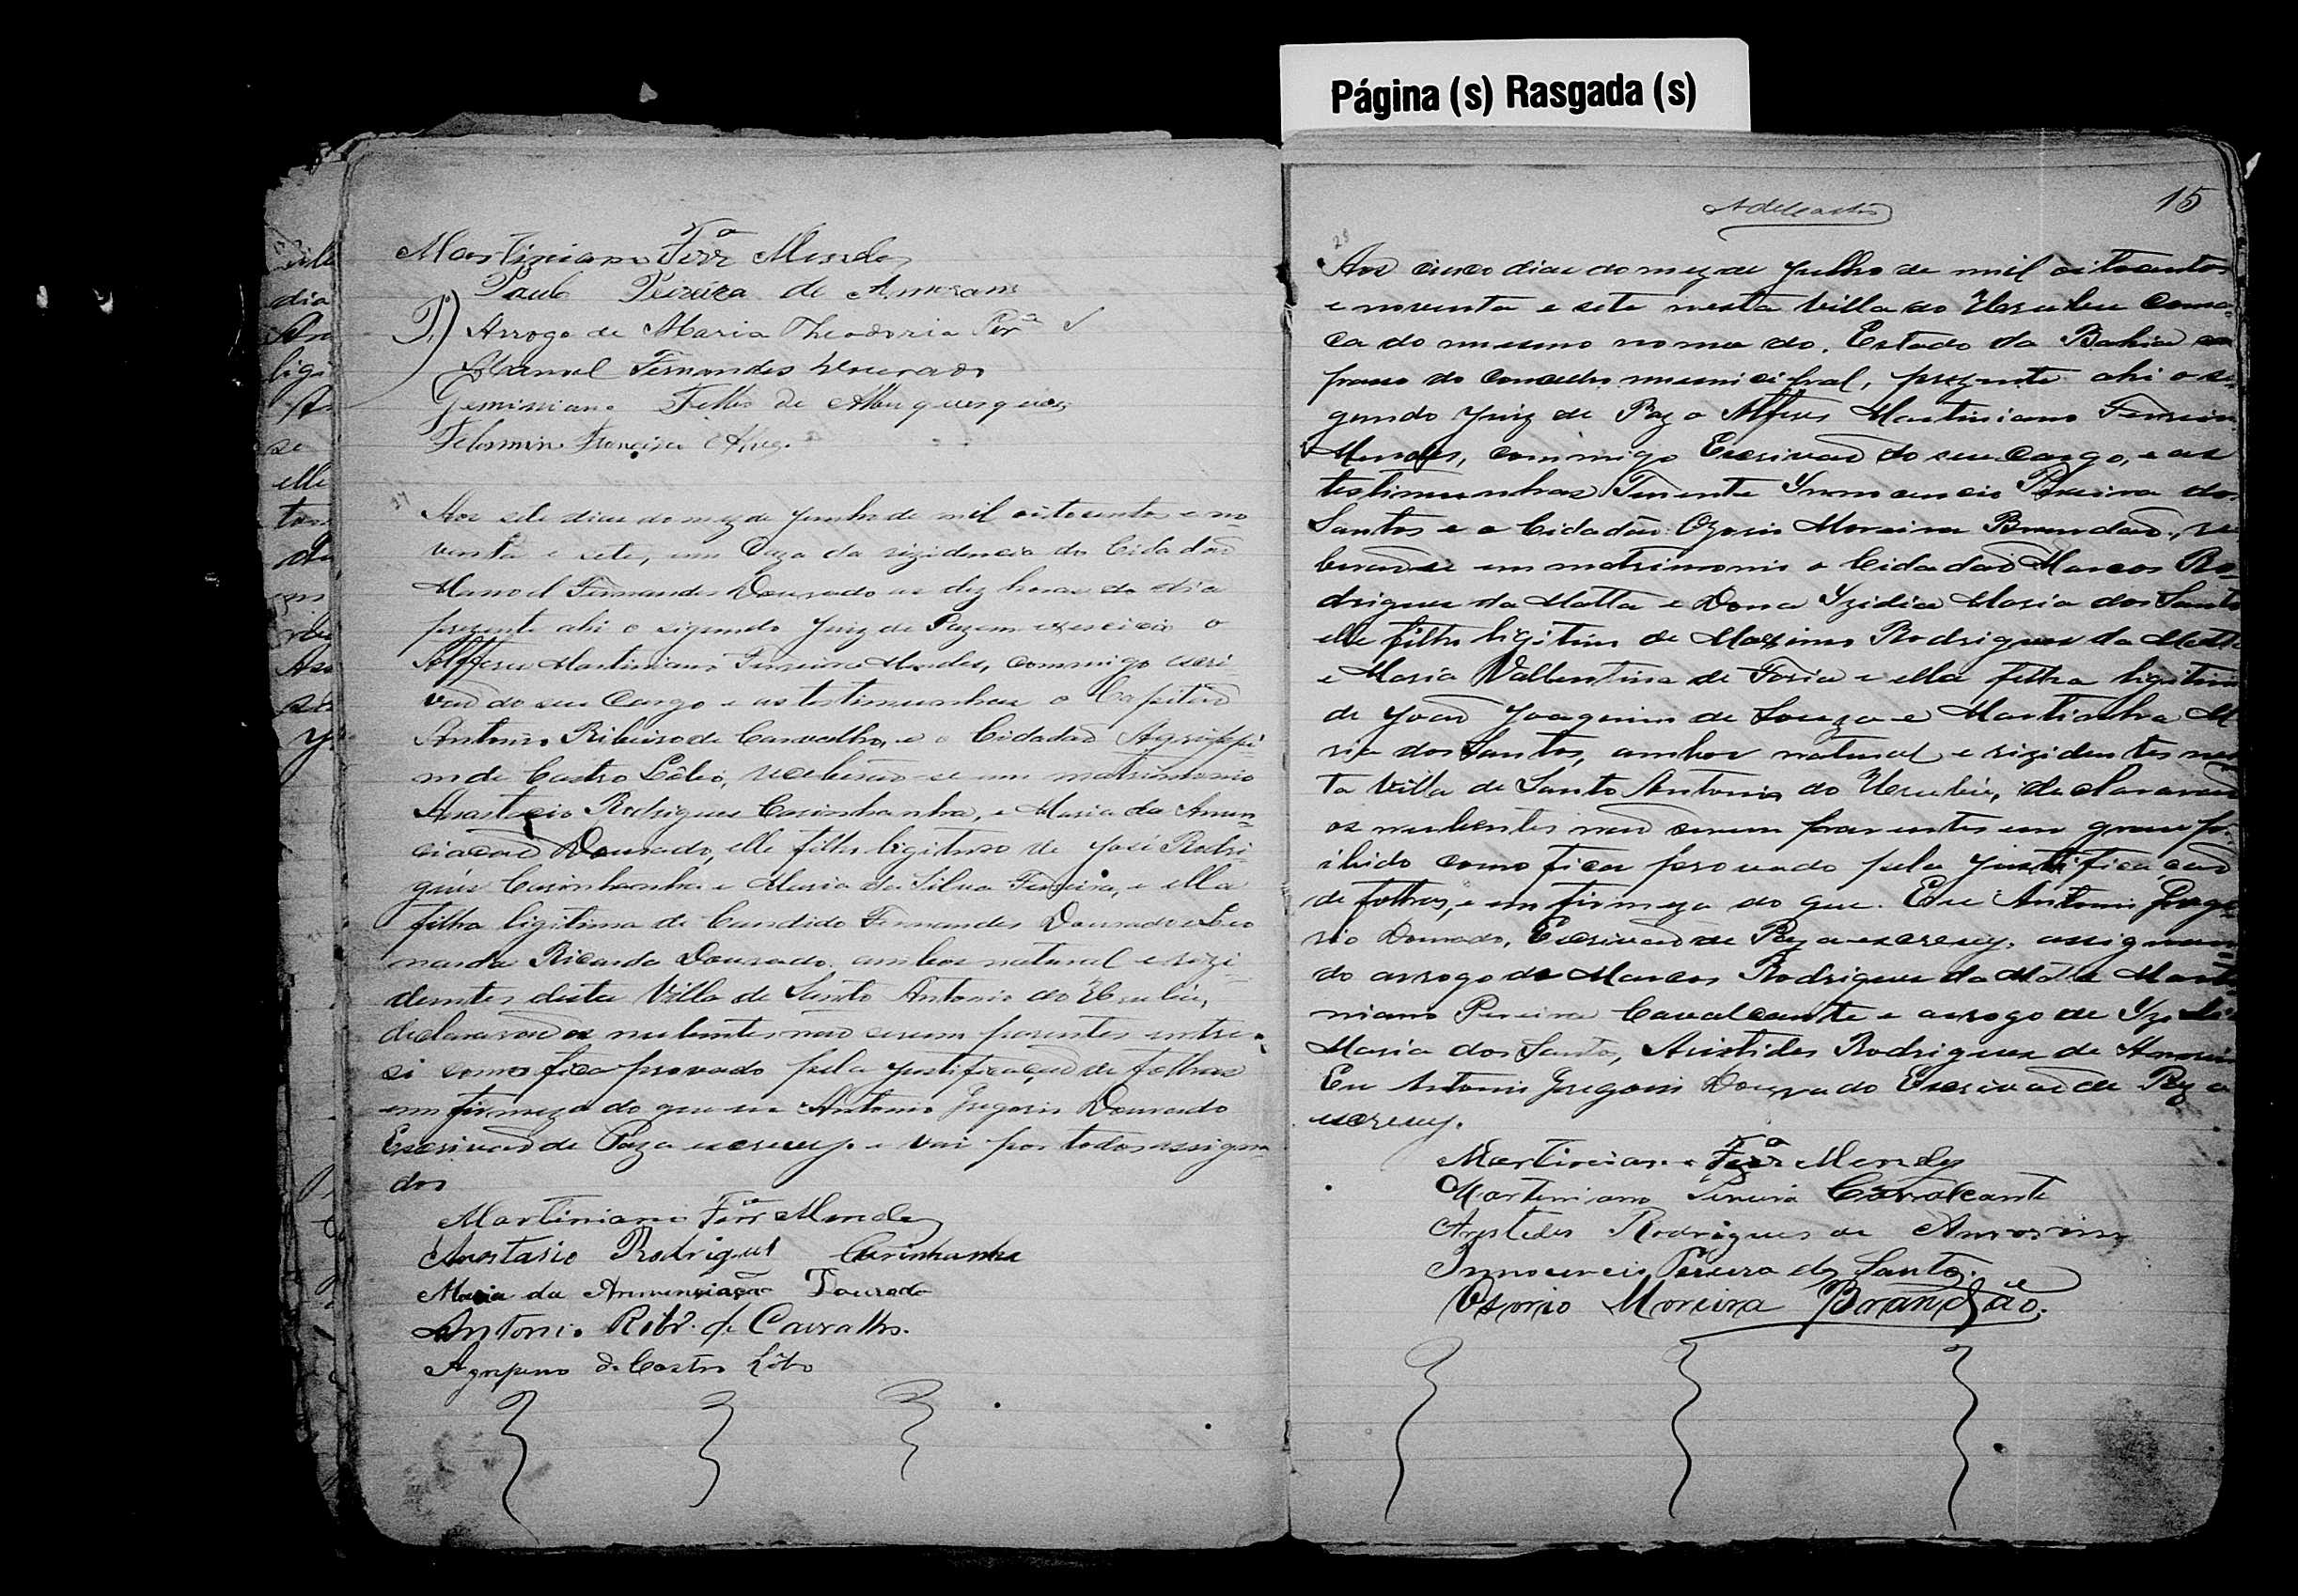 Página (s) Rasgada (s)
Martiniano Ferrª Mendes
Paulo Pereira de Amoram
Arrogo de Maria Theodoria Perª
Manoel Fernandes Dourado
Geminiano Felho de Albuquerque
Francisco
Aos sete dias do mez de Junho de mil oitocentos e no-
venta e sete, em Caza da rizidencia do Cidadaõ
Manoel Fernandes Dourado as dez horas do dia
prezente ahi o sigundo Juiz de Paz em exercicio o
Alfferes Martiniano Ferreira Mendes, commigo escri-
vaõ do seu Cargo e as testimunhas o Capitaõ
Antonio Ribeiro de Carvalho, e o Cidadaõ Agrippi-
no de Castro Lôbo, receberaõ-se em matrimonio
Anastacio Rodrigues Carinhanha, e Maria da Anun-
ciacaõ Dourado, elle filho ligitimo de José Rodri-
gues Carinhanha e Maria da Silva Ferreira, e ella
filha ligitima de Candido Fernandes Dourado e Leo
narda Ricarda Dourado, ambos natural e rizi-
dentes desta Villa de Santo Antonio do Urubú,
declararaõ os nubentes naõ serem parentes entre
si como fica provado pela justificaçaõ de folhas
em firmeza do que eu Antonio Gregorio Dourado
Escrivaõ de Paz a escrevy e vai por todos assigna-
dos
Martiniano Ferrª Mendes
Anastacio Rodrigues Carinhanha
Maria da Annunciação Dourado
Antonio Ribr. de Carvalho.
Agripino de Castro Lôbo
15
28
Aos cinco dias do mez de Julho de mil oitocentos
e noventa e sete nesta Villa do Urubu Coma-
ca do mesmo nome do Estado da Bahia em
passo do Concelho municipal, prezente ahi o se-
gundo Juiz de Paz o Alferes Martiniano Ferreira
Mendes, commigo Escrivaõ do seu Cargo, e as
testimunhas Tenente Innocencio Pereira dos
Santos e o Cidadaõ Ozorio Moreira Brandaõ, re
beraõ-se em matrimonio o Cidadaõ Marcos Ro-
drigues da Matta e Dona Yzidia Maria dos Santo
elle filho ligitimo de Maximo Rodrigues da Matta
e Maria Vallentina de Faria e ella filha ligitima
de Joaõ Joaquim de Souza e Martinha M
ria dos Santos, ambos natural e rizidentes nes
ta Villa de Santo Antonio do Urubú, declararaõ
os nubentes naõ serem parentes em grau p
ibido como fica provado pela justificaçaõ
de folhas, e em firmeza do que. Eu Antonio Grego
rio Dourado, Escrivaõ de Paz a escrevy. assignan-
do arrogo de Marcos Rodrigues da Matta Marti
niano Pereira Cavalcante e arrogo de Yzidi
Maria dos Santos, Aristides Rodrigues de Amorim
Eu Antonio Gregorio Dourado Escrivaõ de Paz o
escrevy.
Martiniano Ferrª Mendes
Marteniano Pereira Cavalcante
Arestides Rodrigues de Amorim
Innocencio Pereira dos Santos.
Osorio Moreira Brandão.